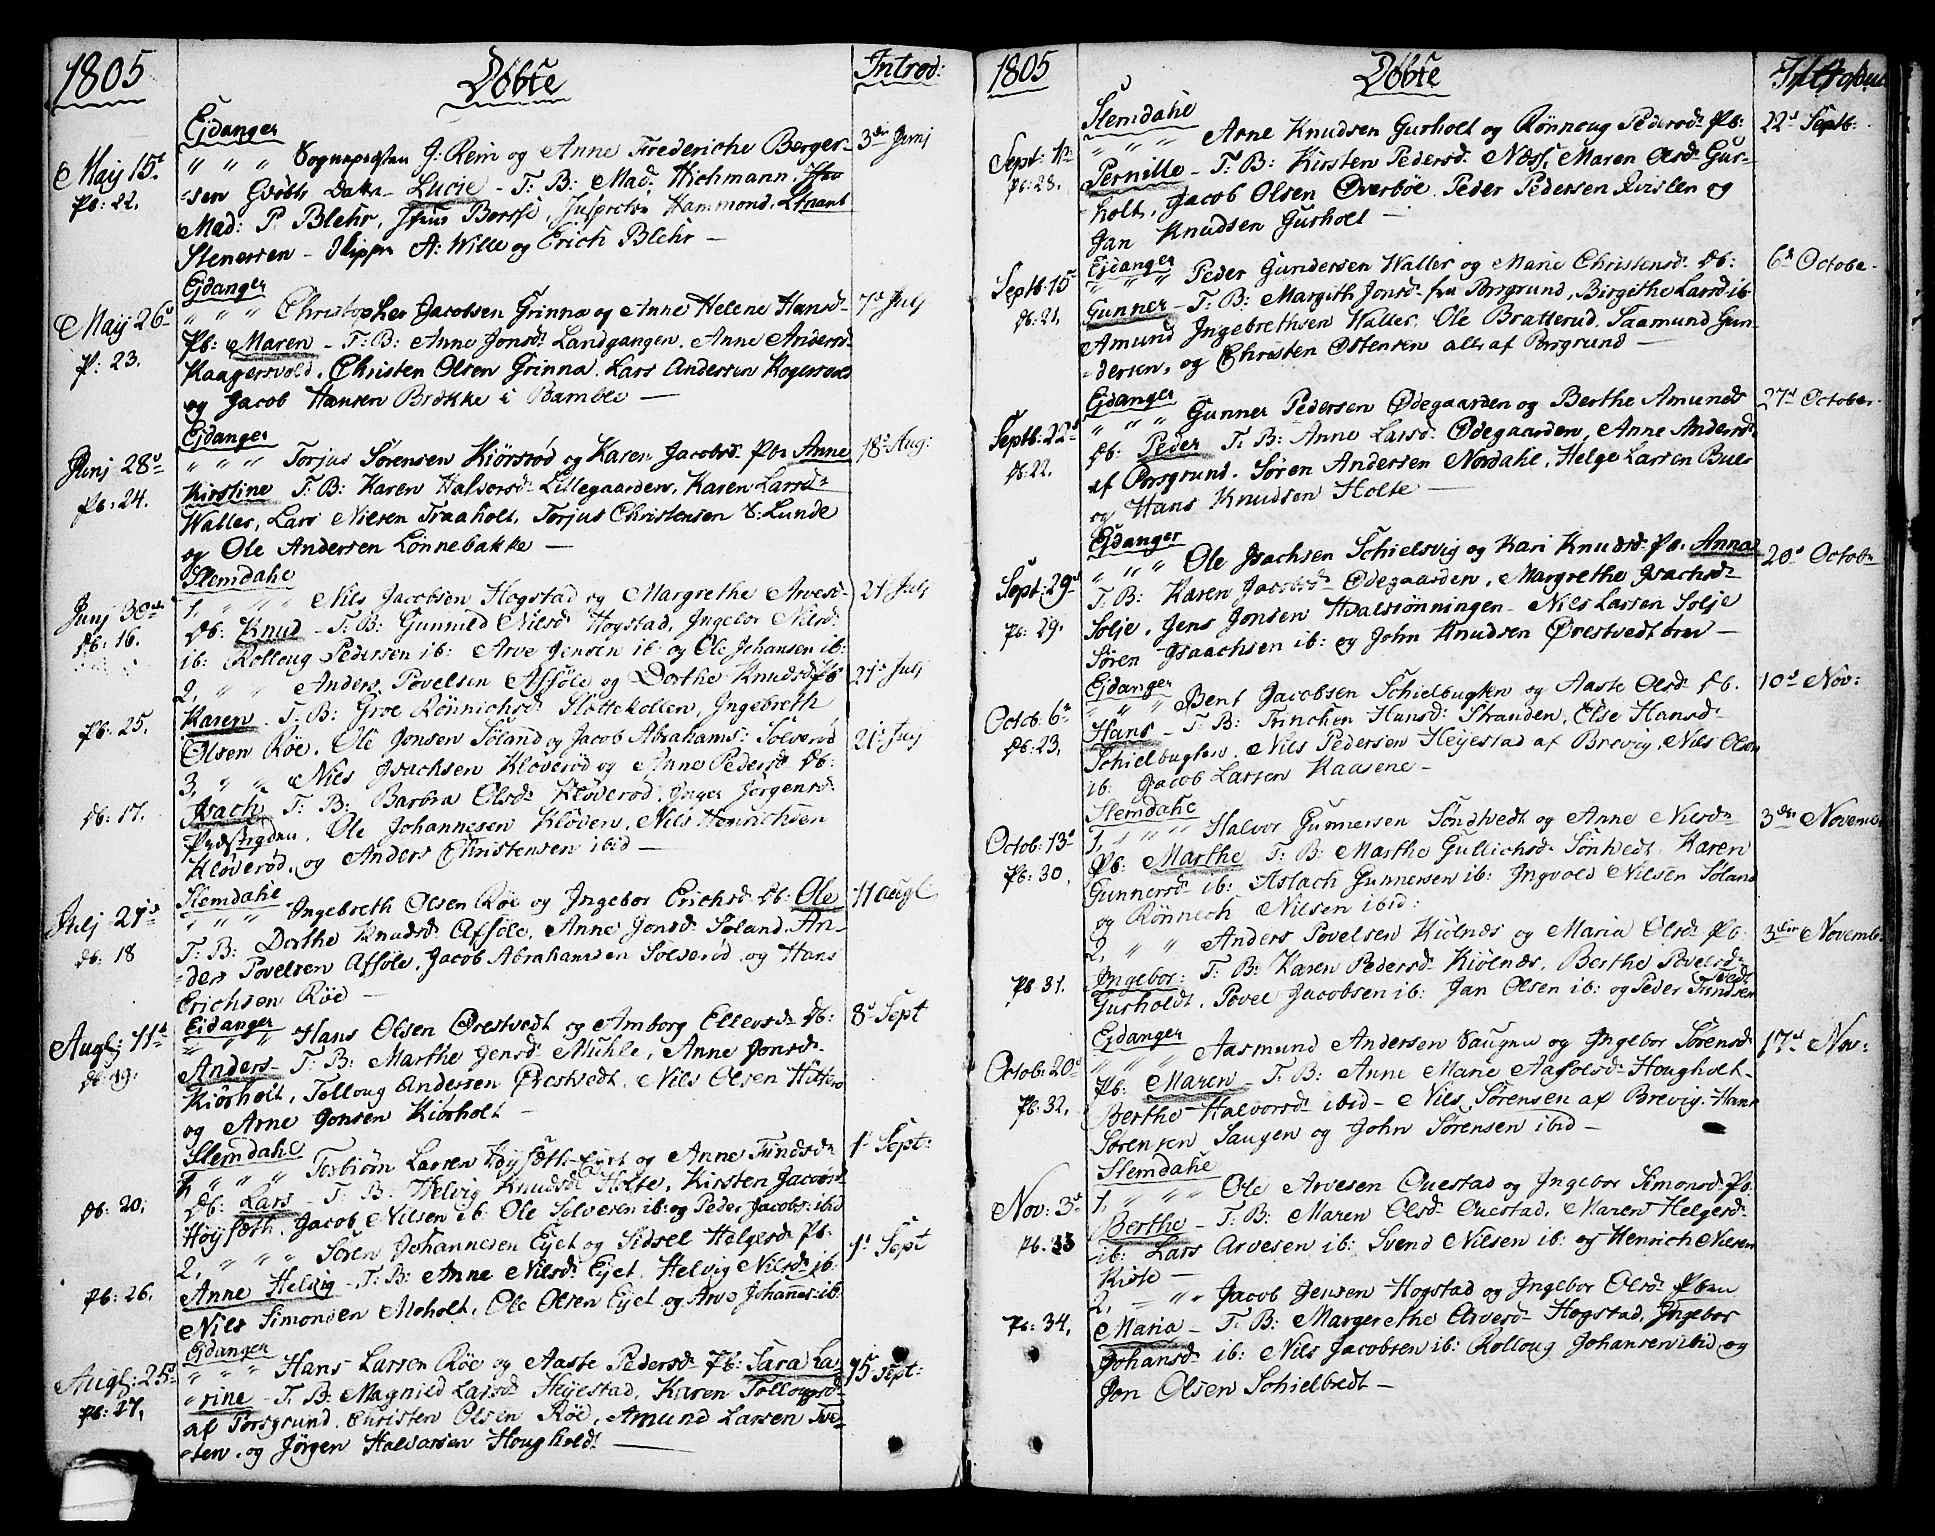 1805
Döbte
Introd:
Ejdanger
Maij 15de " " " Sognepresten J. Rein og Anne Frederiche Berger- 3die Junj
Pb: 22. -sen Gvöbtr Datter Lucie - T: B: Mad. Hichmann,
Mad: P. Blehr, Jfrue Borsse, Hammond, Ltnant
Stenersen - Skipper A: Wille og Erich Blehr -
Ejdanger
Maij 26d " " " Christopher Jacobsen Grinna og Anne Helene Hansd. 7d Julj
P: 23. Pb: Maren - T: B: Anne Jonsd. Landgangen, Anne Andersd.
Kaagersvold, Christen Olsen Grinna, Lars Anderssen Kogersvold
og Jacob Hansen Brække i Bamble -
Ejdanger
Junj 28d " " " Torjus Sörensen Kiörsröd og Karen Jacobsd. Pb: Anne 18d Aug:
Pb: 24. Kirstine T: B: Karen Halvorsd. Lillegaarden, Karen Larsd.
Waller, Lars Nielsen Traaholt, Torjus Christensen S: Lunde
og Ole Andersen Lönnebakke -
Slemdahe
Junj 30de 1, " " " Nils Jacobsen Hogstad og Margrethe Arvesd. 21d Julj
Db: 16. Db: Knud - T: B: Gunnild Nilsd. Hogstad, Ingebor Nilsd.
ib: Rolloug Pedersen ib: Arve Jensen ib: og Ole Johansen ib:
2, " " Anders Povelsen Afsöle og Dorthe Knudsd. Pb: 21d Julj
Pb: 25. Karen - T: B: Groe Rönnichsd. Slottekollen, Ingebreth
Olsen Röe, Ole Jonsen Söland og Jacob Abrahams: Solveröd 21d Julj
3, " " Nils Jsachsen Klöveröd og Anne Pedersd. Db:
Db: 17. Jsach T: B: Barbra Olsd. Klöveröd, Jnger Jörgensd.
Ole Johannesen Klöven, Nils Henrichsen
Klöveröd, og Anders Christensen ibid -
Slemdahe
Julj 21d " " " Ingebreth Olsen Röe og Ingebor Erichsd. Db: Ole 11 Augl
Db: 18 T: B: Dorthe Knudsd. Afsöle, Anne Jonsd. Söland, An-
-ders Povelsen Afsöle, Jacob Abrahamsen Solveröd og Hans
Erichsen Röe -
Ejdanger
Augl: 11d " " " Hans Olsen Örestvedt og Amborg Ellevsd. Db: 8d Sept
Db: 19. Anders - T: B: Marthe Jensd. Mühle, Anne Jonsd.
Kiörholt, Tolloug Andersen Örestvedt, Nils Olsen Hitters
og Arne Jonsen Kiörholt -
Slemdahe
1, " " " Torbiörn Larsen Höjsæth Ejet og Anne Tundsd. 1d Sept:
Db: 20. Db: Lars - T: B: Helvig Knudsd. Holte, Kirsten Jacobsd.
Höjsæth, Jacob Nilsen ib: Ole Solvesen ib: og Peder Jacobs: ibid
2, " " Sören Johannesen Ejet og Sidsel Helgesd. Pb: 1d Sept
Pb: 26. Anne Helvig - T: B: Anne Nilsd. Ejet, Helvig Nilsd. ib:
Nils Simonsen Moholt, Ole Olsen Ejet og Arve Johanes: ib:
Ejdanger
Augl: 25d " " Hans Larsen Röe og Aaste Pedersd. Pb: Sara Ca- 15 Sept:
Pb: 27. -rine - T: B: Magnild Larsd. Hejestad, Karen Tollougsd.
af Porsgrund, Christen Olsen Röe, Amund Larsen Tve-
-ten, og Jörgen Halvorsen Hougholdt -
1805
Döbte
Slemdahe
Sept: 1d " " " Arne Knudsen Gurholt og Rönnoug Pedersd. Pb: 22d Septb:
Pb: 28. Pernille - T: B: Kirsten Pedersd. Næss, Maren Olsd. Gur-
holt, Jacob Olsen Överböe, Peder Pedersen Qvislen og
Jan Knudsen Gurholt -
Ejdanger
Septb: 15d " " " Peder Gundersen Waller og Marie Christensd. Db: 6d Octobe.
Db: 21. Gunner - T: B: Margith Jonsd. fra Porsgrund, Birgithe Larsd. ib
Amund Ingebrethsen Waller, Ole Bratterud, Saamund Gun-
-dersen, og Christen Östensen alle af Porsgrund -
Ejdanger
Septb: 22d " " " Gunner Pedersen Ödegaarden og Berthe Amunds 27d October.
Db: 22. Db: Peder T: B: Anne Larsd. Ödegaarden, Anne Andersd.
af Porsgrund, Sören Andersen Nordahe, Helge Larsen Buer
og Hans Knudsen Holte -
Ejdanger
Sept: 29d " " " Ole Jsachsen Schielsvig og Kari Knudsd. Pb: Anna 20d Octob.
Pb: 29. T: B: Karen Jacobsd. Ödegaarden, Margrethe Jsachsd.
Solje, Jens Jonsen Hvalsrönningen - Nils Larsen Solje
Sören Jsaachsen ib: og John Knudsen Örestvedt övre -
Ejdanger
Octob: 6d " " " Bent Jacobsen Schielbugten og Aaste Olsd. Db. 10d Nov:
Db: 23. Hans - T: B: Trinchen Hansd. Stranden, Else Hansd.
Schielbugten, Nils Pedersen Hejestad af Brevig, Nils Olsen
ib: Jacob Larsen Kaasene -
Slemdahe
Octob: 13d 1, " " " Halvor Gunnersen Söndtvedt og Anne Nilsd. 3die Novemb.
Pb: 30. Pb: Marthe T: B: Marthe Gullichsd. Sönhvedt, Karen
Gunnersd. ib: Aslach Gunnersen ib: Ingvold Nilsen Söland
og Rönnech Nilsen ibid:
2, " " Anders Povelsen Kiölnæs og Maria Olsd. Pb: 3die Novemb:
Pb 31. Ingebor: T: B: Karen Pedersd. Kiölnæs, Berthe Povelsd.
Gurholdt, Povel Jacobsen ib: Jan Olsen ib: og Peder Trulsen Tvedt
Ejdanger
Octob: 20d " " " Aasmund Andersen Saugen og Ingebor Sörensd. 17d Nov:
Pb: 32. Pb: Maren - T: B: Anne Marie Aasolsd. Hougholt -
Berthe Halvorsd. ibid - Nils Sörensen af Brevig, Hans
Sörensen Saugen og John Sörensen ibid -
Slemdahe
Nov: 3d 1, " " " Ole Arvesen Ouestad og Ingebor Simonsd. Pb:
Pb: 33 Berthe - T: B: Maren Olsd. Ouestad, Maren Helgesd.
ib: Lars Arvesen ib: Svend Nilsen ib: og Henrich Nilsen
Kiste -
2, " " Jacob Jensen Hogstad og Ingebor Olsd. Pben
Pb: 34, Maria - T: B: Margerethe Arvesd. Hogstad, Ingebor
Johansd. ib: Nils Jacobsen ib: Rolloug Johansen ibid, og
Jon Olsen Schielbredt -